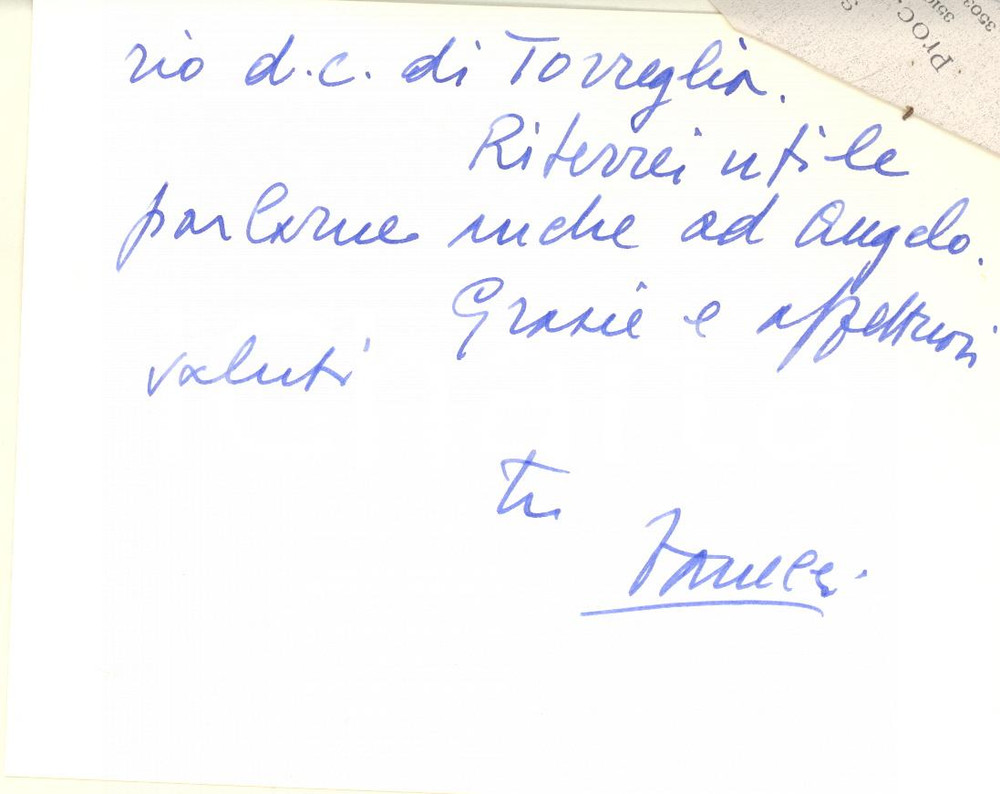 rio d.c. di Torreglia.
Riterrei utile
parlarne anche ad Angelo.
Grazie e affettuosi
saluti
tuo
PROC
3510
3503